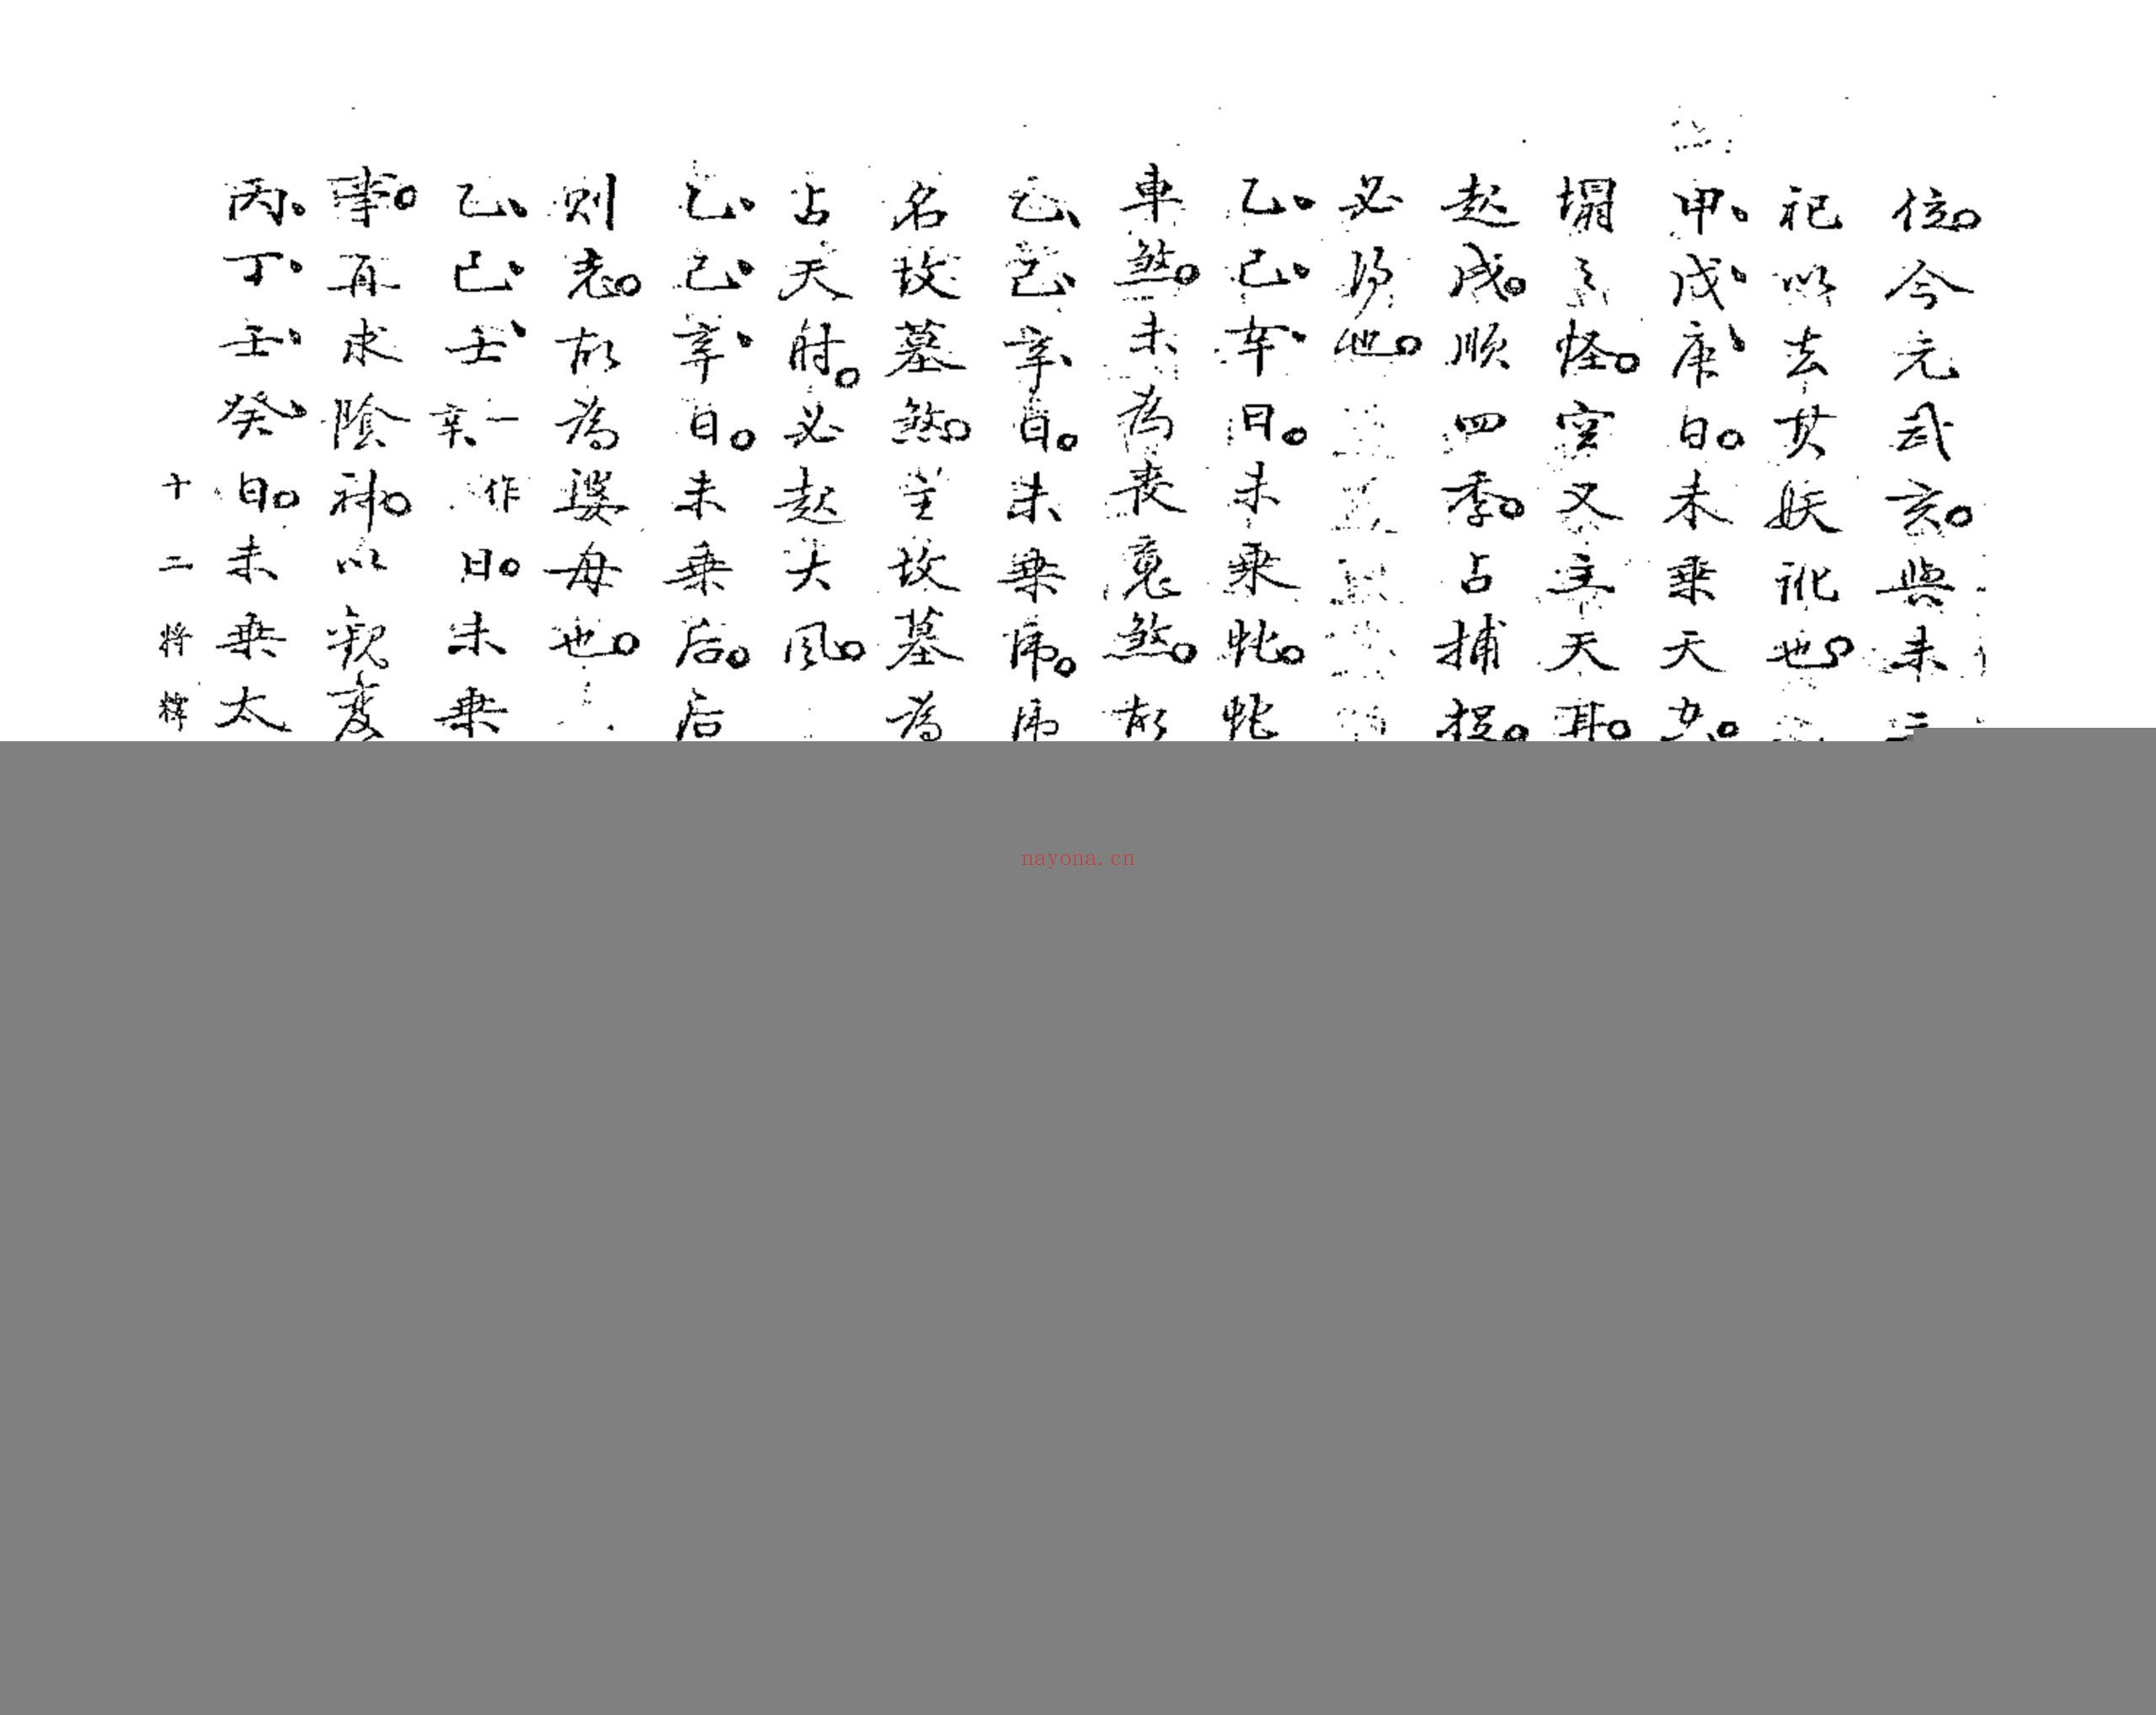 位。今元武亥。與未
祀以去其妖訛也。
甲、戊、庚、日。未乘天女。
塌之怪。空又主天耳。
起戌。順四季。占捕捉。
必得也。
乙、己、辛、日。未乘蛇。蛇
車煞。未為喪魄煞。故
乙、己、辛、日。未乘虎。虎
名坟墓煞。主坟墓為
占天時。必起大風。
乙、己、辛、日。未乘后。后
則老。故為婆母也。
乙、己、壬、一作辛日。未乘
事。再求陰神。以觀变
丙、丁、壬、癸、日。未乘太
十二將釋
nayona.cn